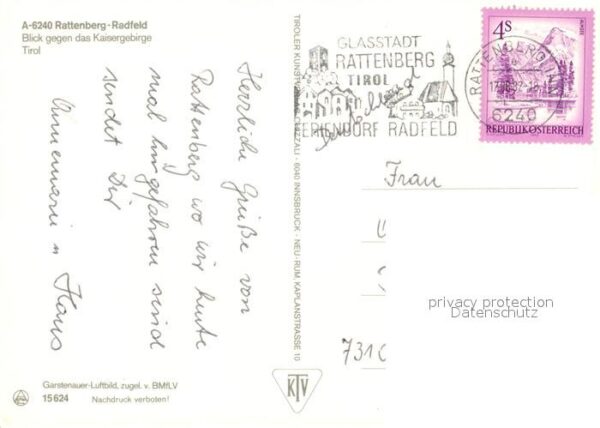 A-6240 Rattenberg-Radfeld
Blick gegen das Kaisergebirge
Tirol
Herrliche Grüße von
Rattenberg wo wir heute
mal hingefahren sind
sendet Dir
Annemarie u Hans
Garstenauer-Luftbild, zugel. v. BMfLV
15624 Nachdruck verboten!
TIROLER KUNSTVERLAG CHIZZALI · 6040 INNSBRUCK · NEU-RUM KAPLANSTRASSE 10
KTV
GLASSTADT
RATTENBERG
TIROL
FERIENDORF RADFELD
RATTENBERG
6240
4S
REPUBLIK ÖSTERREICH
Frau
731
privacy protection
Datenschutz